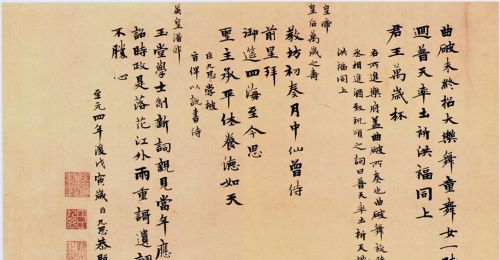 曲破未終拍大樂舞童舞女一時
迴普天率土祈洪福同上
君王萬歲杯
右所進樂府蓋曲破所奏也曲破舞旋
丞相進酒致祝頌之詞曰普天率土祈天
洪福同上
皇帝
皇后萬歲之壽
教坊初奏月中仙曾侍
前星拜
御筵四海至今思
聖主承平休養德如天
臣九思嘗被
旨俾以說書侍
英皇潛邸
玉堂學士創新詞親見當年應
詔時政是落花江外雨重謌遺調
不勝
至元四年後戊寅歲臣九思恭題